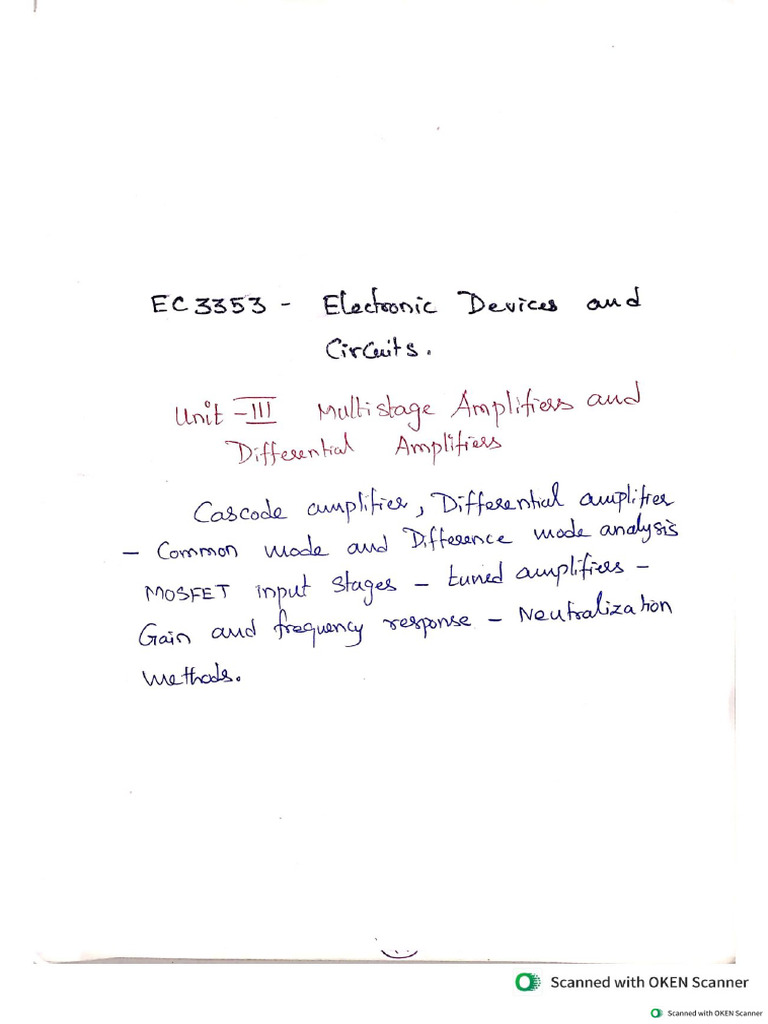 EC3353 - Electronic Devices and
Circuits.
Unit -III Multistage Amplifiers and
Differential Amplifiers
Cascode amplifier, Differential amplifier
- Common mode and Difference mode analysis
MOSFET input stages - tuned amplifiers -
Gain and frequency response - Neutralization
methods.
Scanned with OKEN Scanner
Scanned with OKEN Scanner